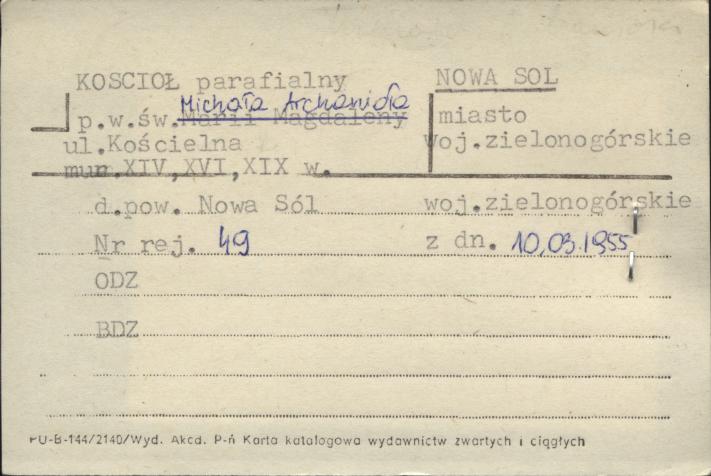 KOSCIOŁ parafialny NOWA SOL
Michała Archanioła
p.w.św. Marii Magdaleny miasto
ul.Kościelna woj.zielonogórskie
mur.XIV,XVI,XIX w.
d.pow. Nowa Sól woj.zielonogórskie
Nr rej. 49 z dn. 10.03.1955
ODZ
BDZ
PU-B-144/2140/Wyd. Akcd. P-ń Karta katalogowa wydawnictw zwartych i ciągłych